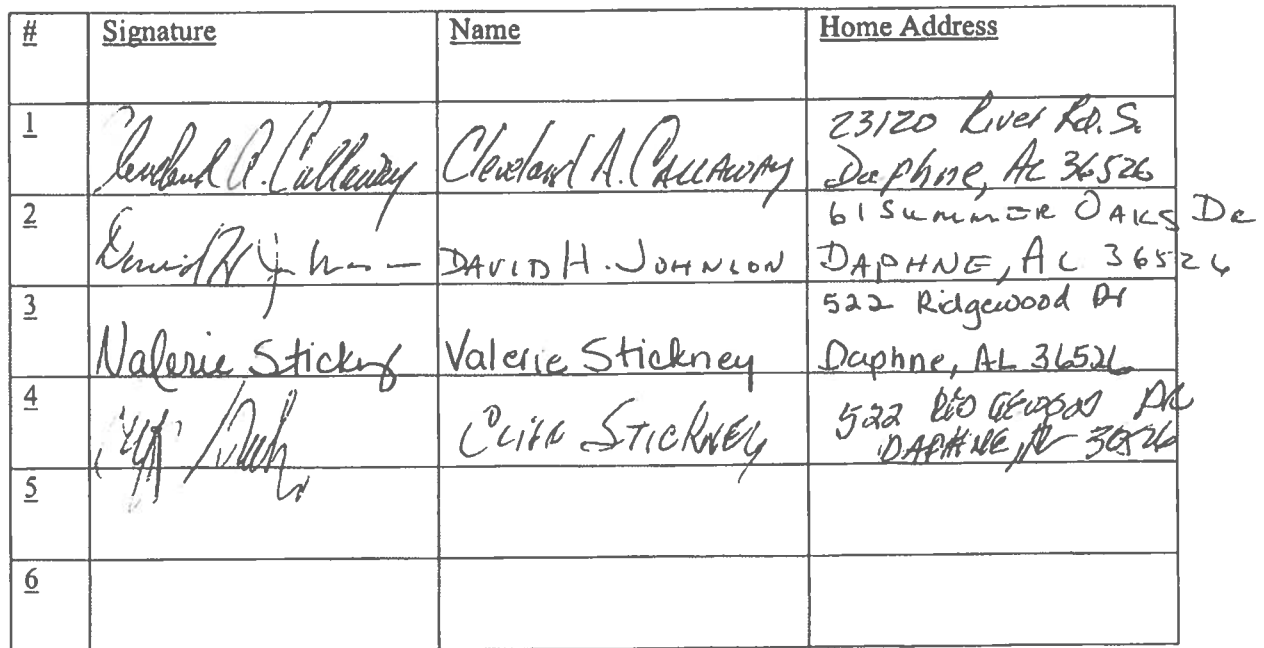 # Signature Name Home Address
1 Cleveland A. Callaway Cleveland A. CALLAWAY 23120 River Rd. S.
Daphne, AL 36526
2 David H. Johnson DAVID H. JOHNSON 61 SUMMER OAKS DR
DAPHNE, AL 36526
3 Valerie Stickney Valerie Stickney 522 Ridgewood Dr
Daphne, AL 36526
4 CLIFF STICKNEY 522 RIDGEWOOD DR
DAPHNE, AL 36526
5
6